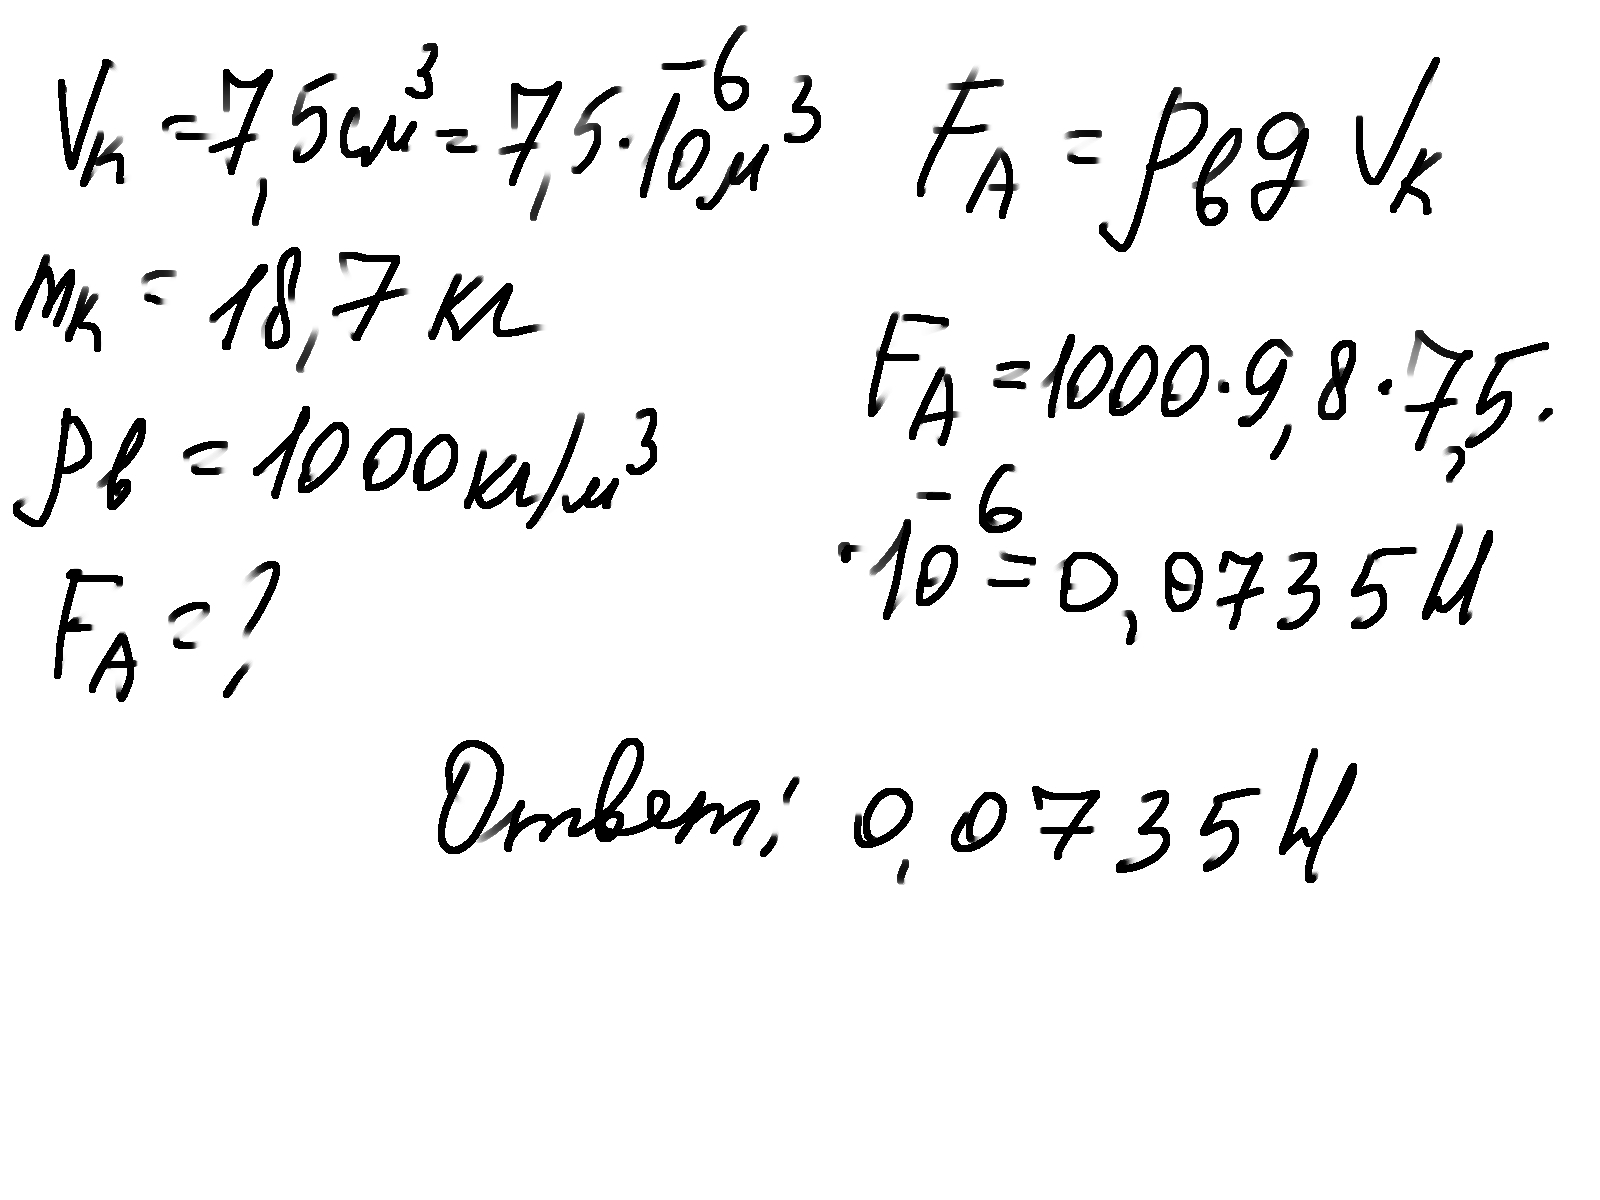 Vк = 7,5 см³ = 7,5·10⁻⁶ м³
mк = 18,7 кг
ρв = 1000 кг/м³
FA = ?
FA = ρв g Vк
FA = 1000·9,8·7,5·
·10⁻⁶ = 0,0735 Н
Ответ: 0,0735 Н